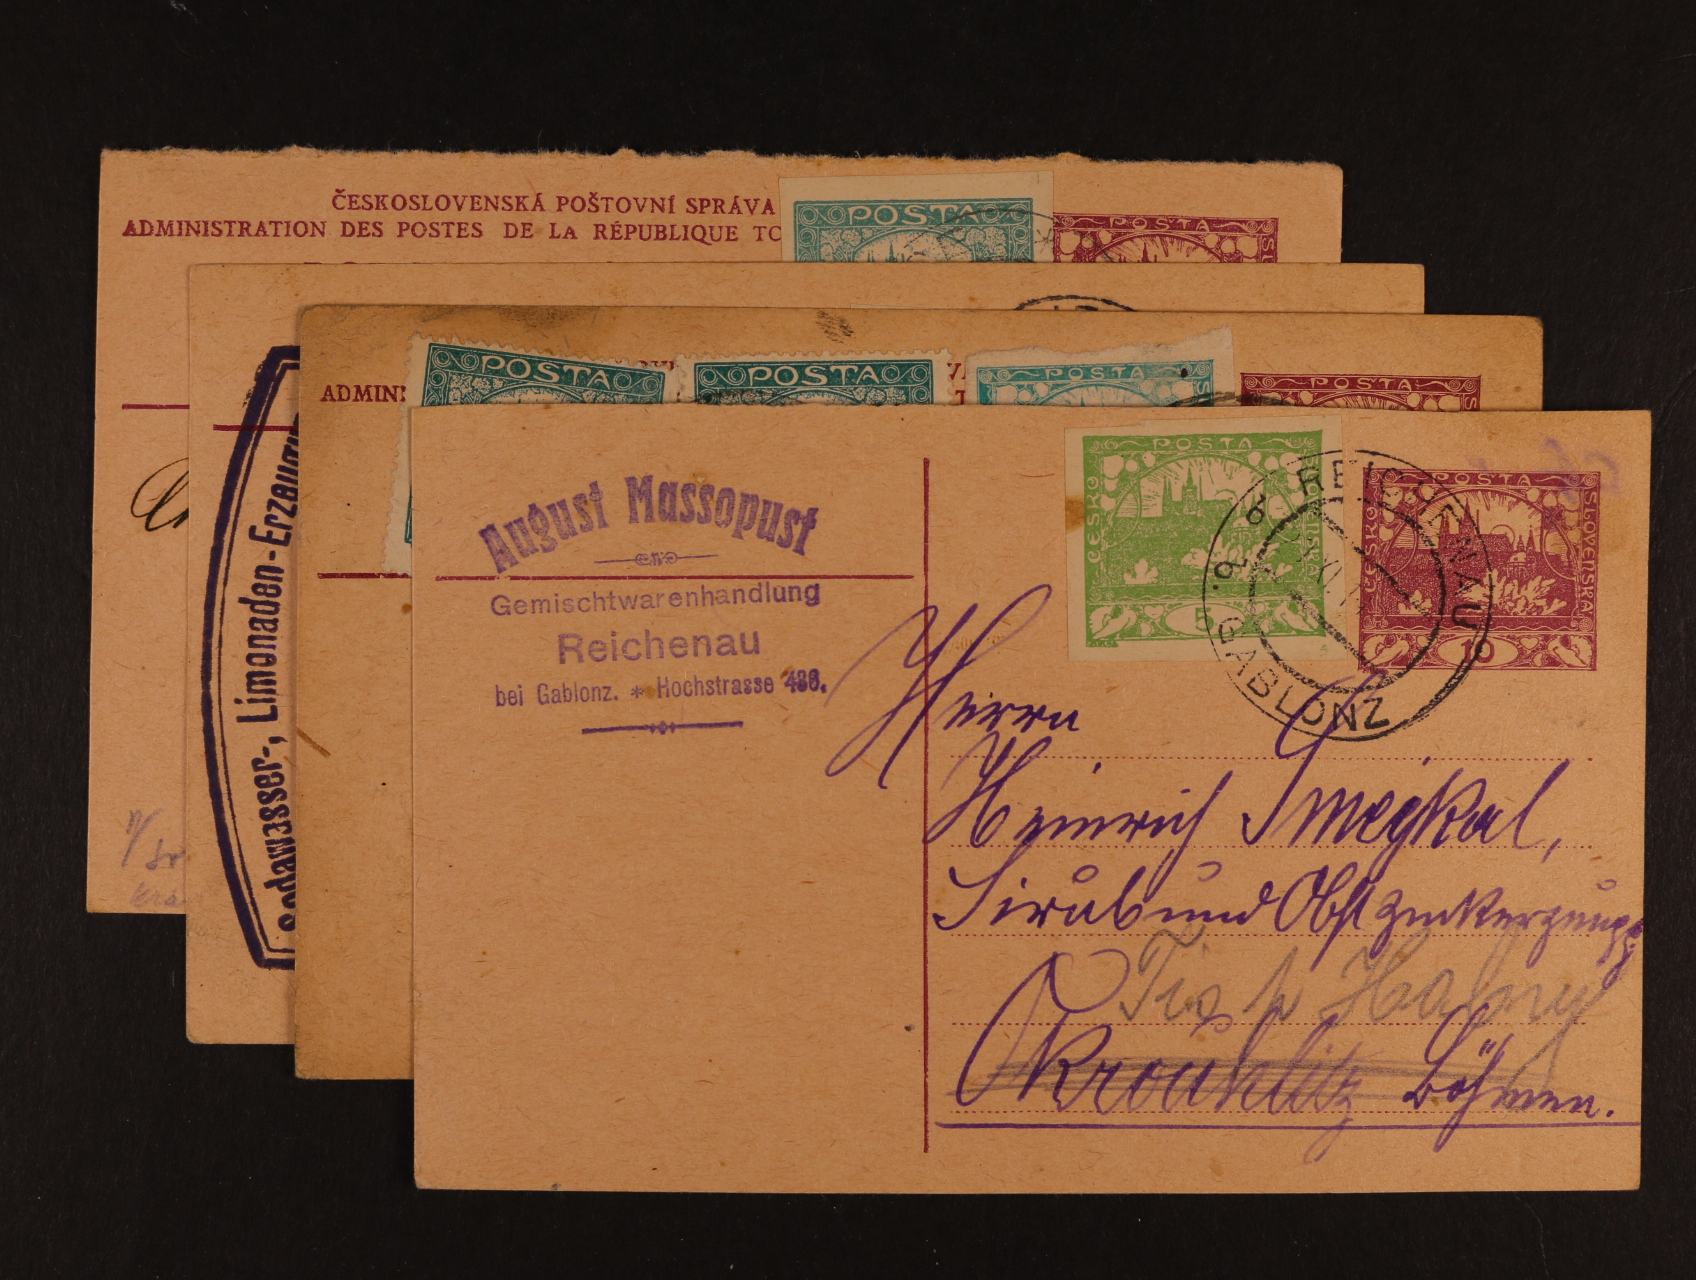 ČESKOSLOVENSKÁ POŠTOVNÍ SPRÁVA
ADMINISTRATION DES POSTES DE LA RÉPUBLIQUE TC
POSTA
POSTA
Sodawasser-, Limonaden-Erzeu
ADMIN
POSTA
POSTA
POSTA
August Massopust
Gemischtwarenhandlung
Reichenau
bei Gablonz. * Hochstrasse 486.
POSTA
ČESKO
5
REICHENAU
GABLONZ
POSTA
ČESKO
SLOVENSKÁ
10
Herrn
Heinrich Smejkal,
Sirub und Obst
Böhmen.